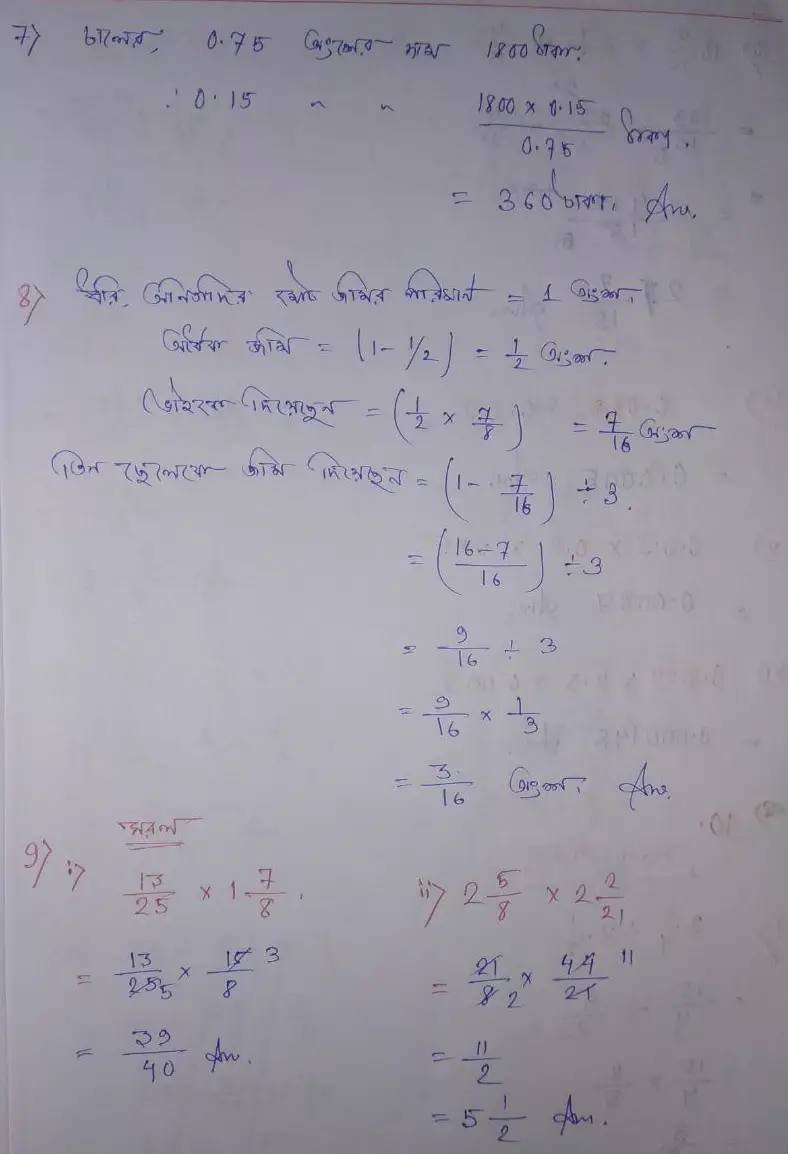 7) চালের, 0.75 অংশের দাম 1800 টাকা.
∴ 0.15 " " 1800 × 0.15 / 0.75 টাকা.
= 360 টাকা. Ans.
8) ধরি, জমির পরিমাণ = 1 অংশ.
অর্ধেক জমি = (1 - 1/2) = 1/2 অংশ.
ভাইকে দিয়েছেন = (1/2 × 7/8) = 7/16 অংশ
তিন ছেলেকে জমি দিয়েছেন = (1 - 7/16) ÷ 3.
= (16-7 / 16) ÷ 3
= 9/16 ÷ 3
= 9/16 × 1/3
= 3/16 অংশ. Ans.
সরল
9) i) 13/25 × 1 7/8.
= 13/25 5 × 15/8 3
= 39/40 Ans.
ii) 2 5/8 × 2 2/21
= 21/8 2 × 44/21 11
= 11/2
= 5 1/2 Ans.